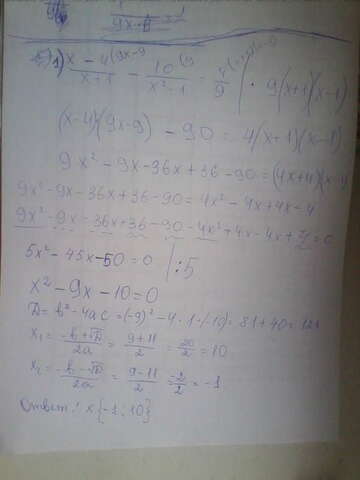 1) x-4 (9x-9 / x+1 - 10 (9 / x²-1 = 4 / 9 | · 9(x+1)(x-1)
(x-4)(9x-9) - 90 = 4(x+1)(x-1)
9x² - 9x - 36x + 36 - 90 = (4x+4)(x-1)
9x² - 9x - 36x + 36 - 90 = 4x² - 4x + 4x - 4
9x² - 9x - 36x + 36 - 90 - 4x² + 4x - 4x + 4 = 0
5x² - 45x - 50 = 0 | :5
x² - 9x - 10 = 0
D = b² - 4ac = (-9)² - 4 · 1 · (-10) = 81 + 40 = 121
x₁ = -b+√D / 2a = 9+11 / 2 = 20 / 2 = 10
x₂ = -b-√D / 2a = 9-11 / 2 = -2 / 2 = -1
Ответ: x{-1; 10}